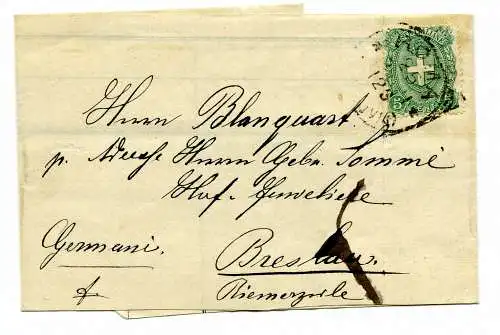 Herrn Blanquart
p. Adresse Herrn Gebr. Sommé
Hof-Juweliere
Germani.
Breslau.
Riemerzeile
5